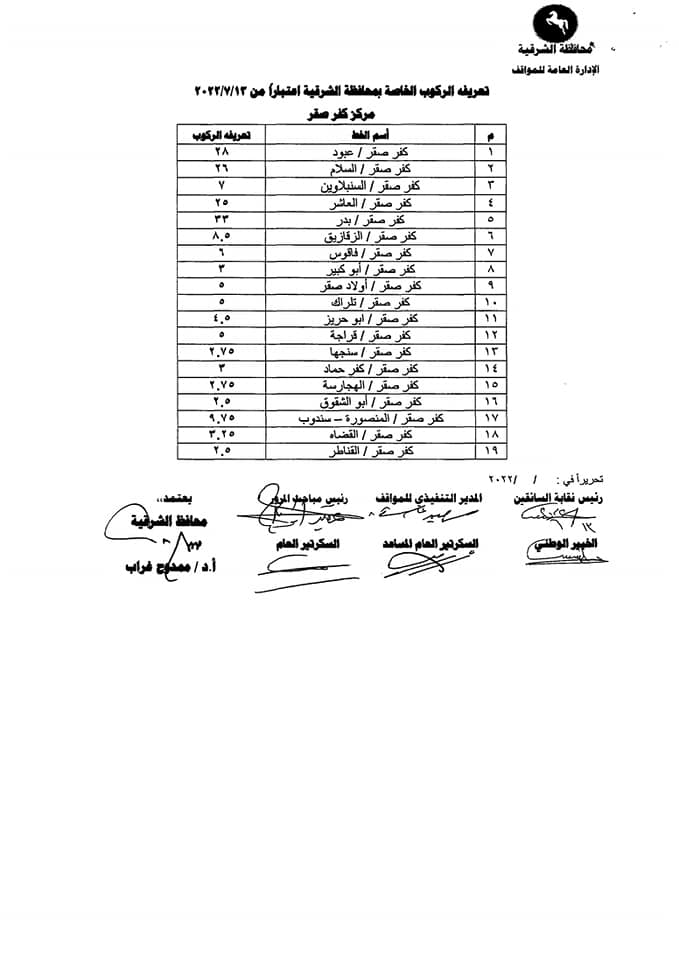 محافظة الشرقية
الإدارة العامة للمواقف
تعريفه الركوب الخاصة بمحافظة الشرقية اعتباراً من ٢٠٢٢/٧/١٣
مركز كفر صقر
م أسم الخط تعريفه الركوب
١ كفر صقر / عبود ٢٨
٢ كفر صقر / السلام ٢٦
٣ كفر صقر / السنبلاوين ٧
٤ كفر صقر / العاشر ٢٥
٥ كفر صقر / بدر ٣٣
٦ كفر صقر / الزقازيق ٨,٥
٧ كفر صقر / فاقوس ٦
٨ كفر صقر / أبو كبير ٣
٩ كفر صقر / أولاد صقر ٥
١٠ كفر صقر / تلراك ٥
١١ كفر صقر / ابو حريز ٤,٥
١٢ كفر صقر / قراجة ٥
١٣ كفر صقر / سنجها ٢,٧٥
١٤ كفر صقر / كفر حماد ٣
١٥ كفر صقر / الهجارسة ٢,٧٥
١٦ كفر صقر / أبو الشقوق ٢,٥
١٧ كفر صقر / المنصورة – سندوب ٩,٧٥
١٨ كفر صقر / القضاه ٣,٢٥
١٩ كفر صقر / القناطر ٢,٥
تحريراً في : / /٢٠٢٢
رئيس نقابة السائقين المدير التنفيذي للمواقف رئيس مباحث المرور يعتمد،،
محافظ الشرقية
الخبير الوطني السكرتير العام المساعد السكرتير العام
أ.د / ممدوح غراب